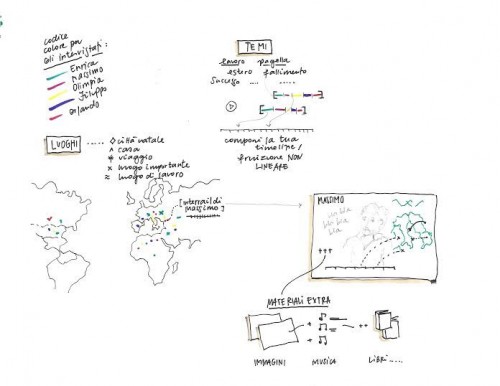 codice
colore per
gli intervistati:
Enrica
Massimo
Olimpia
Filippo
Orlando
TEMI
lavoro pagella
estero fallimento
successo .... .....
componi la tua
timeline/
fruizione NON
LINEARE
LUOGHI ..... ◇ città natale
^ casa
* viaggio
x luogo importante
≈ luogo di lavoro
[Interrail di
Massimo]
MASSIMO
bla bla
bla bla
bla
+++
MATERIALI EXTRA
+ + ++
+
IMMAGINI MUSICA LIBRI.....